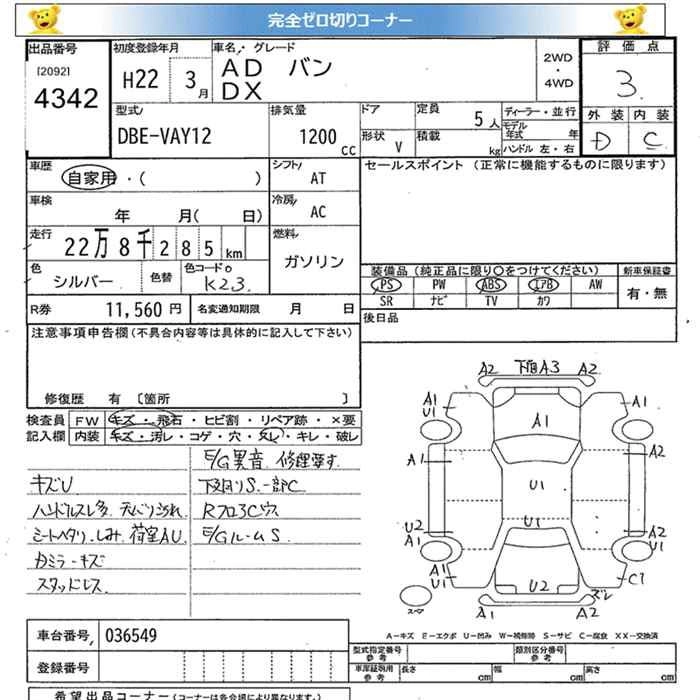 完全ゼロ切りコーナー
出品番号 初度登録年月 車名・グレード 2WD ・ 4WD 評価点
[2092]
4342 H22 3月 AD バン
DX
3.
型式 排気量 ドア 定員 5人 ディーラー・並行 外装 内装
DBE-VAY12 1200cc 形状 V 積載 kg モデル年式 年 ハンドル 左・右 D C
車歴 シフト セールスポイント (正常に機能するものに限ります)
自家用・( ) AT
車検 冷房
年 月( 日) AC
走行 燃料
22万8千285km ガソリン
色 色替 色コードNo 装備品(純正品に限り○をつけてください) 新車保証書
シルバー K23 PS PW ABS エアB AW 有・無
SR ナビ TV カワ
R券 11,560円 名変通知期限 月 日 後日品
注意事項申告欄(不具合内容等は具体的に記入して下さい)
修復歴 有 [箇所 ]
検査員 FW キズ・飛石・ヒビ割・リペア跡・×要
記入欄 内装 キズ・汚レ・コゲ・穴・スレ・キレ・破レ
E/G異音 修理要す
キズU 下廻りS.一部C
ハンドルスレ多 天バリ汚れ
シートヘタリ.しみ.荷室AU E/GルームS
カミラーキズ
スタッドレス
A2 下部A3 A2
A1 U1 A1 A1
A1 U1 A2
U2 A1 U1 A2 U1
A1 U1 U2 C1
スペア A1 A2 ズレ
A-キズ E-エクボ U-凹み W-補修跡 S-サビ C-腐食 XX-交換済
車台番号 036549 型式指定番号 参考 類別区分番号 参考
登録番号 車庫証明用 参考 長さ cm 幅 cm 高さ cm
希望出品コーナー(コーナーは各会場により異なります。)